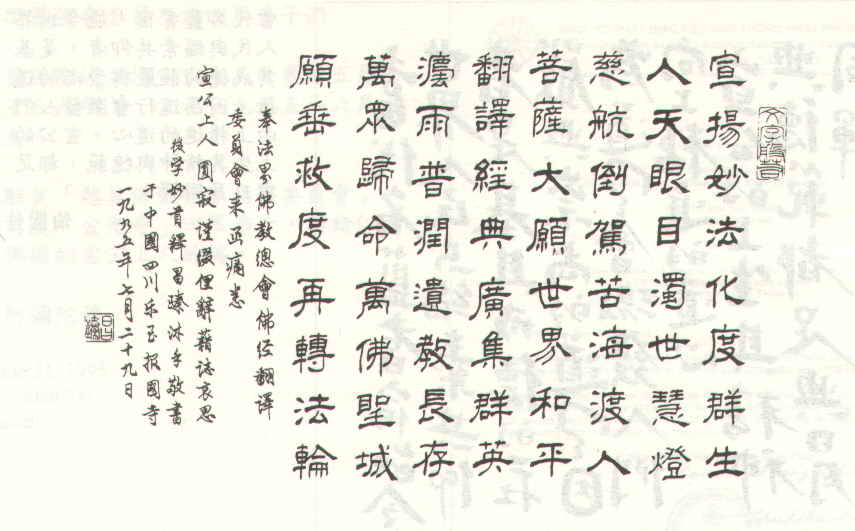 宣揚妙法化度群生
人天眼目濁世慧燈
慈航倒駕苦海渡人
菩薩大願世界和平
翻譯經典廣集群英
澐雨普潤遺教長存
萬眾歸命萬佛聖城
願垂救度再轉法輪
奉法界佛教總會佛经翻譯
委員會来函痛悉
宣公上人圓寂謹綴俚辭藉誌哀思
後學妙首釋昌臻沐手敬書
于中國四川乐至报國寺
一九九五年七月二十九日